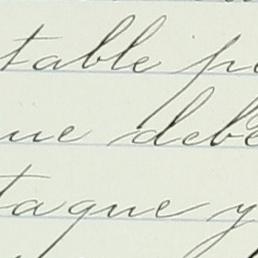 table p
ue debe
taque y